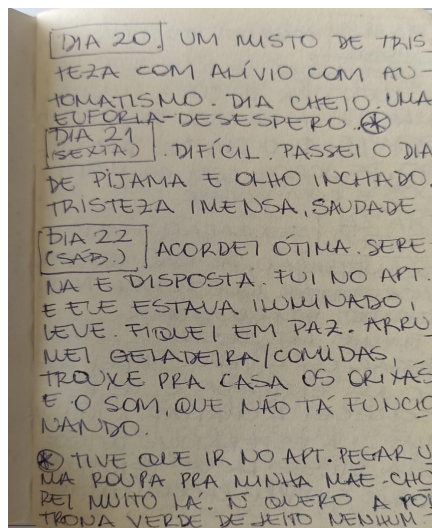 DIA 20. UM MISTO DE TRIS
TEZA COM ALÍVIO COM AU-
TOMATISMO. DIA CHEIO. UMA
EUFORIA-DESESPERO. ⊛
DIA 21
(SEXTA) . DIFÍCIL. PASSEI O DIA
DE PIJAMA E OLHO INCHADO.
TRISTEZA IMENSA, SAUDADE
DIA 22
(SÁB.) ACORDEI ÓTIMA. SERE-
NA E DISPOSTA. FUI NO APT.
E ELE ESTAVA ILUMINADO,
LEVE. FIQUEI EM PAZ. ARRU
MEI GELADEIRA/COMIDAS,
TROUXE PRA CASA OS ORIXÁS
E O SOM, QUE NÃO TÁ FUNCIO
NANDO.
⊛ TIVE QUE IR NO APT. PEGAR U
MA ROUPA PRA MINHA MÃE-CHO
REI MUITO LÁ. Ñ QUERO A POL
TRONA VERDE DE JEITO NENHUM-